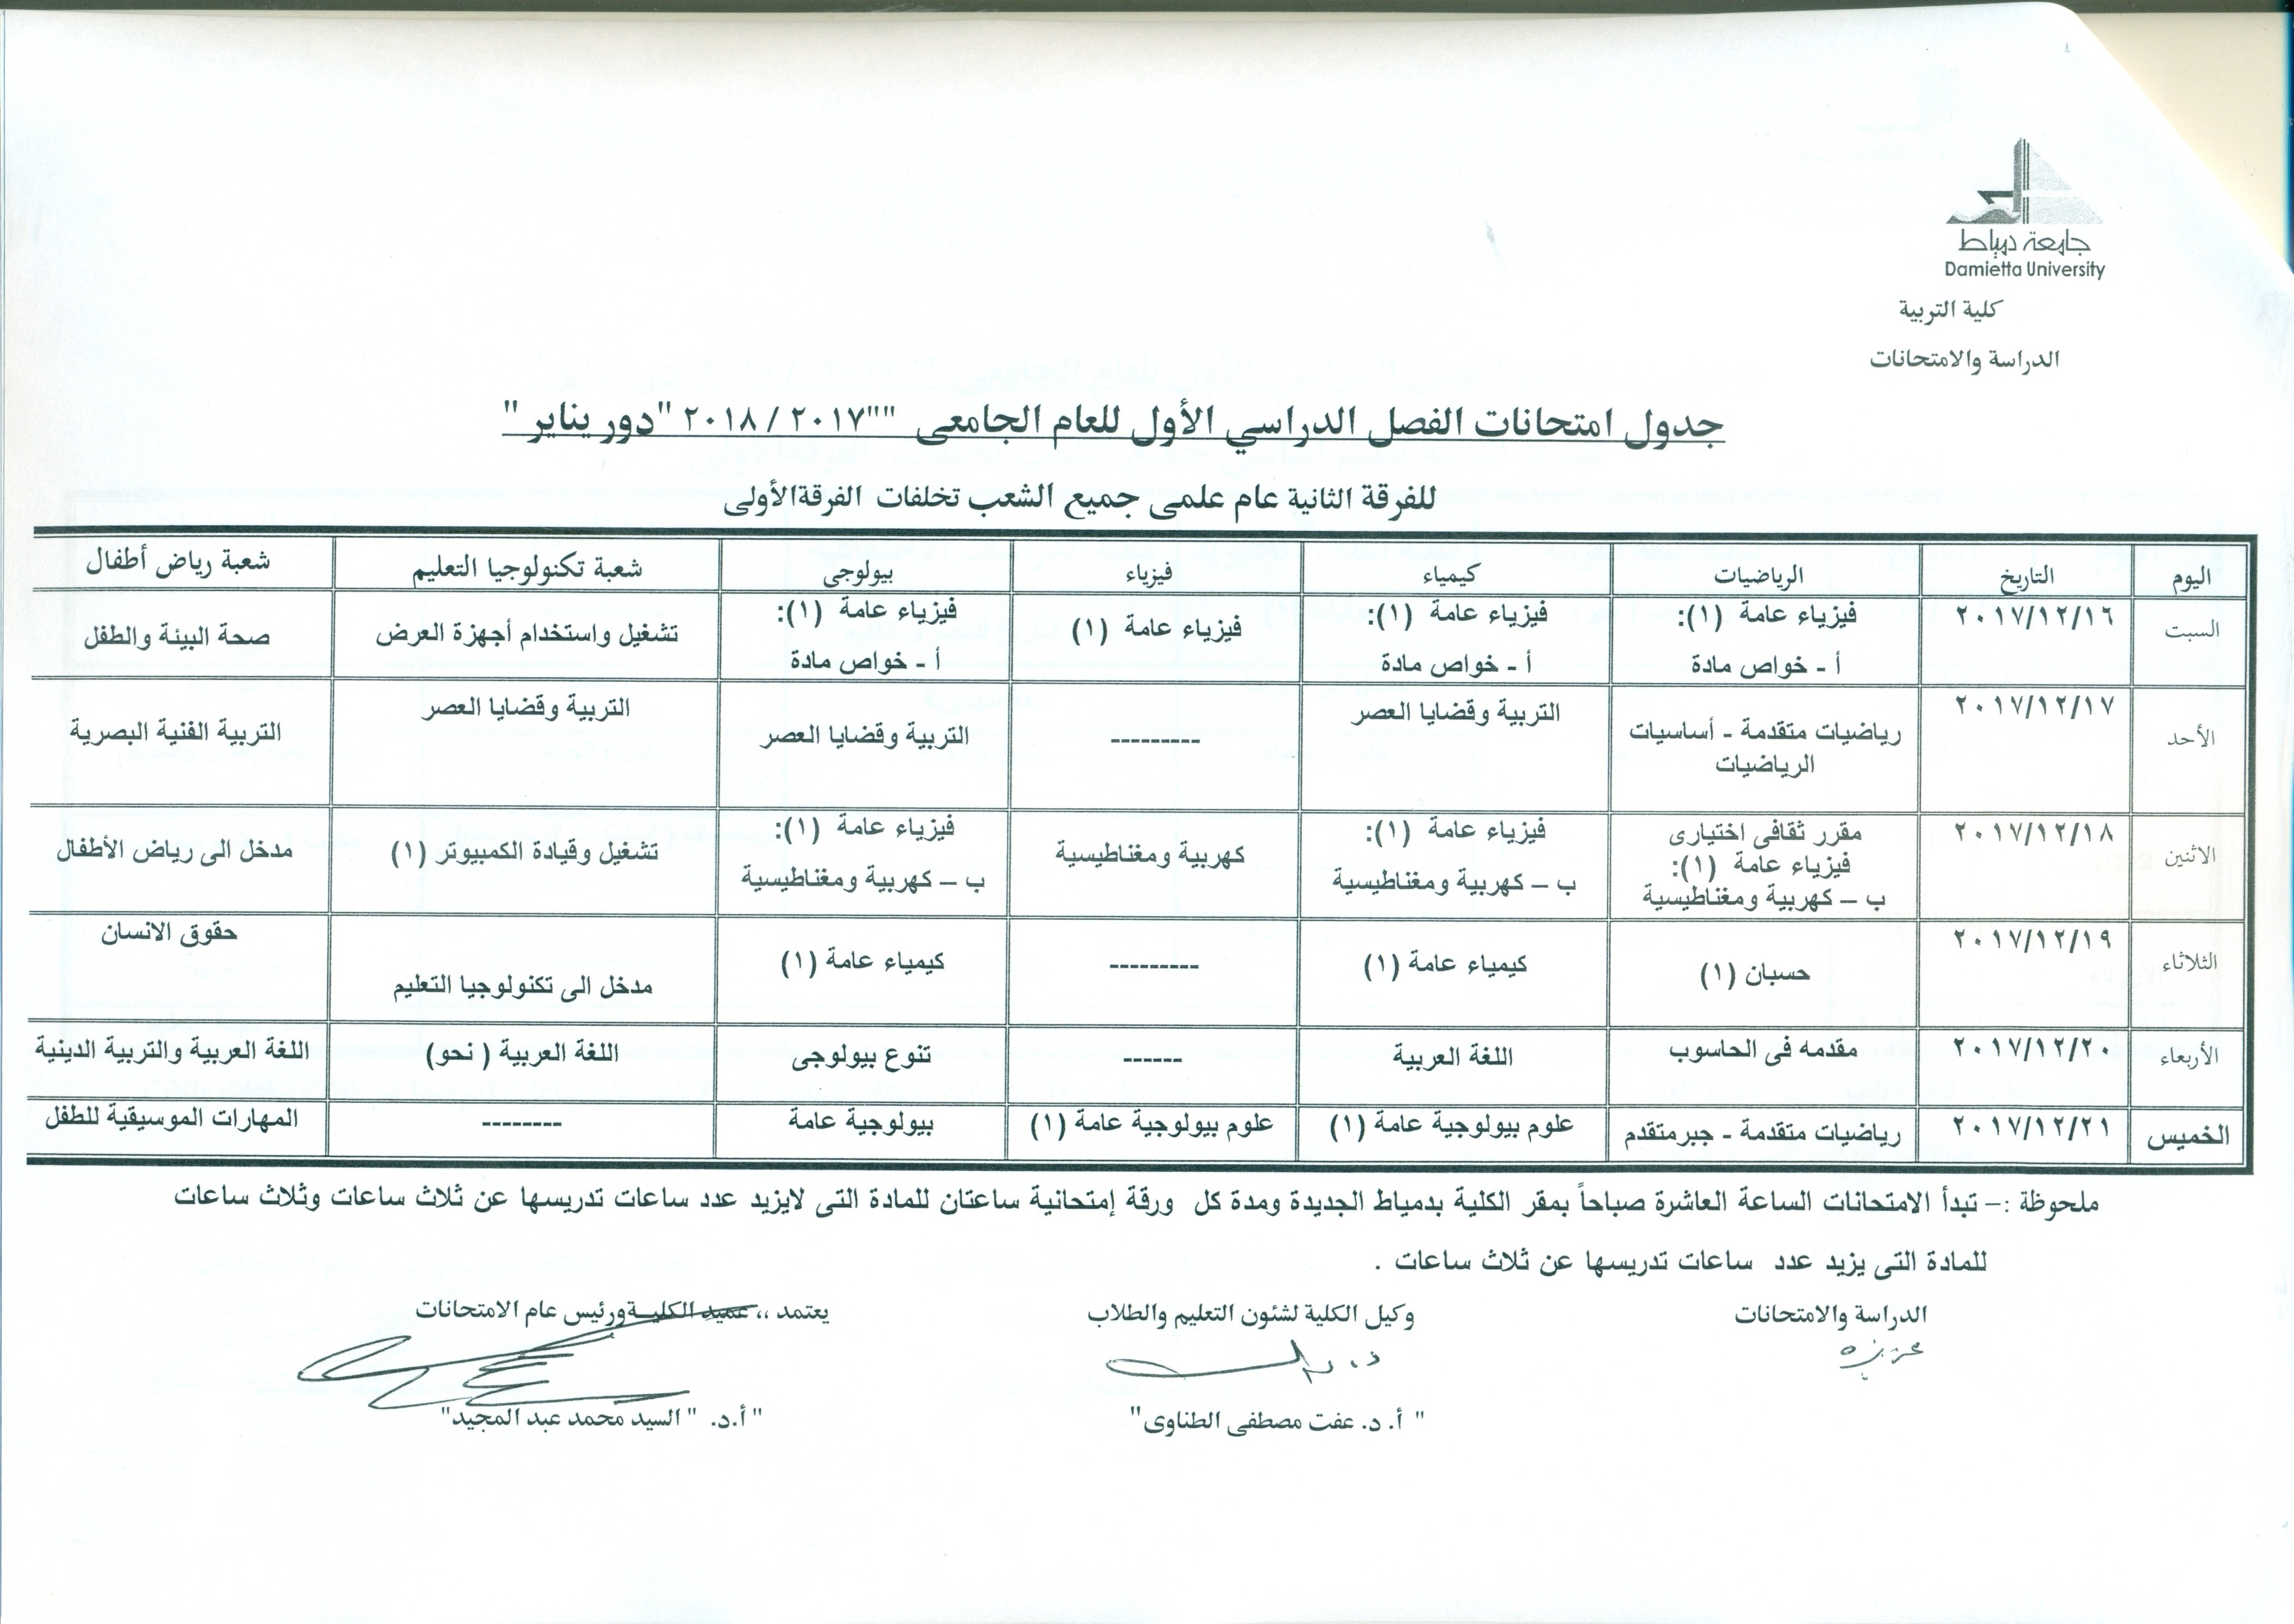 جامعة دمياط
Damietta University
كلية التربية
الدراسة والامتحانات
جدول امتحانات الفصل الدراسي الأول للعام الجامعى ""٢٠١٧ / ٢٠١٨ "دور يناير "
للفرقة الثانية عام علمى جميع الشعب تخلفات الفرقةالأولى
اليوم التاريخ الرياضيات كيمياء فيزياء بيولوجى شعبة تكنولوجيا التعليم شعبة رياض أطفال
السبت ٢٠١٧/١٢/١٦ فيزياء عامة (١): فيزياء عامة (١): فيزياء عامة (١) فيزياء عامة (١): تشغيل واستخدام أجهزة العرض صحة البيئة والطفل
أ - خواص مادة أ - خواص مادة أ - خواص مادة
الأحد ٢٠١٧/١٢/١٧ رياضيات متقدمة - أساسيات التربية وقضايا العصر --------- التربية وقضايا العصر التربية وقضايا العصر التربية الفنية البصرية
الرياضيات
الاثنين ٢٠١٧/١٢/١٨ مقرر ثقافى اختيارى فيزياء عامة (١): كهربية ومغناطيسية فيزياء عامة (١): تشغيل وقيادة الكمبيوتر (١) مدخل الى رياض الأطفال
فيزياء عامة (١): ب – كهربية ومغناطيسية ب – كهربية ومغناطيسية
ب – كهربية ومغناطيسية
الثلاثاء ٢٠١٧/١٢/١٩ حسبان (١) كيمياء عامة (١) --------- كيمياء عامة (١) مدخل الى تكنولوجيا التعليم حقوق الانسان
الأربعاء ٢٠١٧/١٢/٢٠ مقدمه فى الحاسوب اللغة العربية ------ تنوع بيولوجى اللغة العربية ( نحو) اللغة العربية والتربية الدينية
الخميس ٢٠١٧/١٢/٢١ رياضيات متقدمة - جبرمتقدم علوم بيولوجية عامة (١) علوم بيولوجية عامة (١) بيولوجية عامة -------- المهارات الموسيقية للطفل
ملحوظة :– تبدأ الامتحانات الساعة العاشرة صباحاً بمقر الكلية بدمياط الجديدة ومدة كل ورقة إمتحانية ساعتان للمادة التى لايزيد عدد ساعات تدريسها عن ثلاث ساعات وثلاث ساعات
للمادة التى يزيد عدد ساعات تدريسها عن ثلاث ساعات .
الدراسة والامتحانات وكيل الكلية لشئون التعليم والطلاب يعتمد ،، عميد الكليةورئيس عام الامتحانات
" أ. د. عفت مصطفى الطناوى" " أ.د. " السيد محمد عبد المجيد"